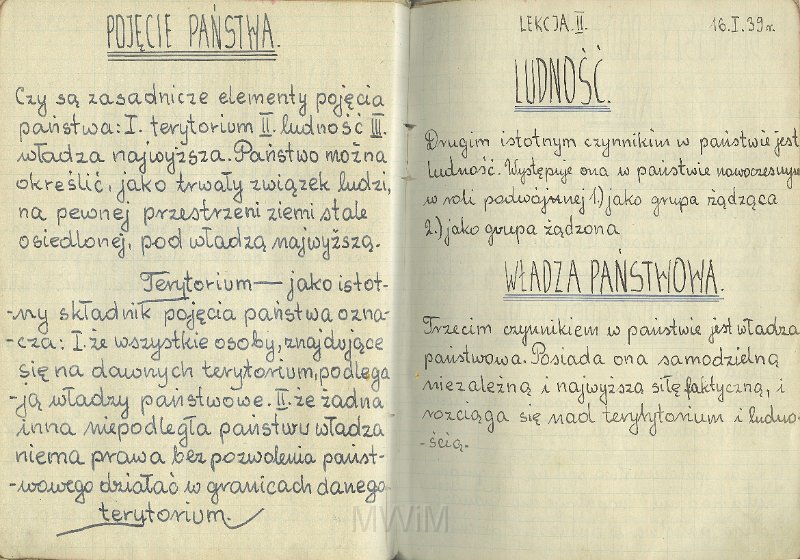 POJĘCIE PAŃSTWA.
Czy są zasadnicze elementy pojęcia
państwa: I. terytorium II. ludność III.
władza najwyższa. Państwo można
określić, jako trwały związek ludzi,
na pewnej przestrzeni ziemi stale
osiedlonej, pod władzą najwyższą.
Terytorium — jako istot-
-ny składnik pojęcia państwa ozna-
-cza: I. że wszystkie osoby, znajdujące
się na dawnych terytorium, podlega
-ją władzy państwowe. II. że żadna
inna niepodległa państwu władza
niema prawa bez pozwolenia państ-
-wowego działać w granicach danego
terytorium.
LEKCJA II. 16.I.39r.
LUDNOŚĆ.
Drugim istotnym czynnikim w państwie jest
ludność. Występuje ona w państwie nowoczesnym
w roli podwójnej 1.) jako grupa żądząca
2.) jako grupa żądzona
WŁADZA PAŃSTWOWA.
Trzecim czynnikiem w państwie jest władza
państwowa. Posiada ona samodzielną
niezależną i najwyższą siłę faktyczną, i
rozciąga się nad terytytorium i ludno-
-ścią.
MWiM